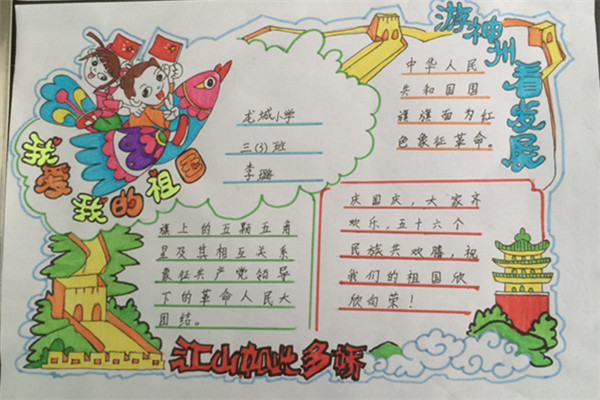 我爱我的祖国
龙城小学
三(3)班
李璐
游神州
看发展
中华人民
共和国国
旗旗面为红
色象征革命。
旗上的五颗五角
星及其相互关系
象征共产党领导
下的革命人民大
团结。
庆国庆，大家齐
欢乐，五十六个
民族共欢腾，祝
我们的祖国欣
欣向荣！
江山如此多娇